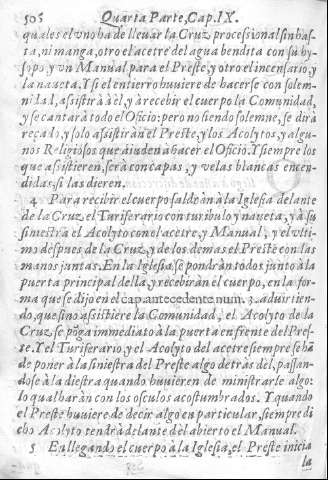 506 Quarta Parte, Cap. IX.
quales el vno ha de lleuar la Cruz processional sin has-
ta, ni manga, otro el acetre del agua bendita con su hy-
sopo, y vn Manual para el Preste, y otro el incensario, y
la naueta. Y si el entierro huuiere de hacerse con solem-
nidad, assistirà à el, y à recebir el cuerpo la Comunidad,
y se cantarà todo el Oficio: pero no siendo solemne, se dirà
reçado, y solo assistiràn el Preste, y los Acolytos, y algu-
nos Religiosos que aiuden à hacer el Oficio. Y siempre los
que assistieren, serà con capas, y velas blancas encen-
didas, si las dieren.
4 Para recibir el cuerpo saldràn à la Iglesia delante
de la Cruz el Turiferario con turibulo y naueta, y à su
siniestra el Acolyto con el acetre, y Manual, y el vlti-
mo despues de la Cruz, y de los demas el Preste con las
manos juntas. En la Iglesia se pondràn todos junto à la
puerta principal della, y recibiràn el cuerpo, en la for-
ma que se dijo en el cap. antecedente num. 3. aduirtien-
do, que si no assistiere la Comunidad, el Acolyto de la
Cruz se pōga immediato à la puerta enfrente del Pres-
te. Y el Turiferario, y el Acolyto del acetre siempre se hā
de poner à la siniestra del Preste algo detràs del, passan-
dose à la diestra quando huuieren de ministrarle algo:
lo qual haràn con los osculos acostumbrados. Y quando
el Preste huuiere de decir algo en particular, siempre di
cho Acolyto tendrà delante del abierto el Manual.
5 En llegando el cuerpo à la Iglesia, el Preste inicia
la